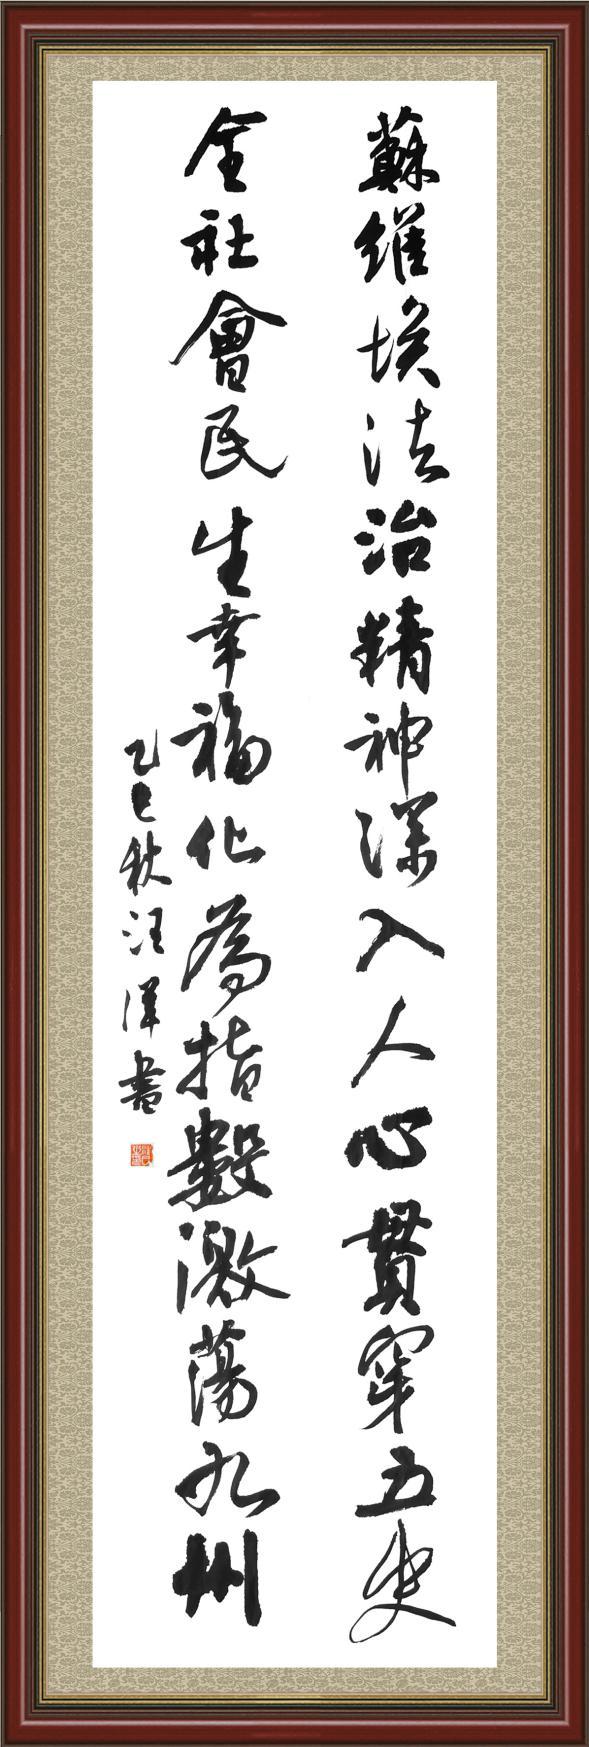 蘇維埃法治精神深入人心貫穿五史
全社會民生幸福化為指數激蕩九州
乙巳秋汪洋書